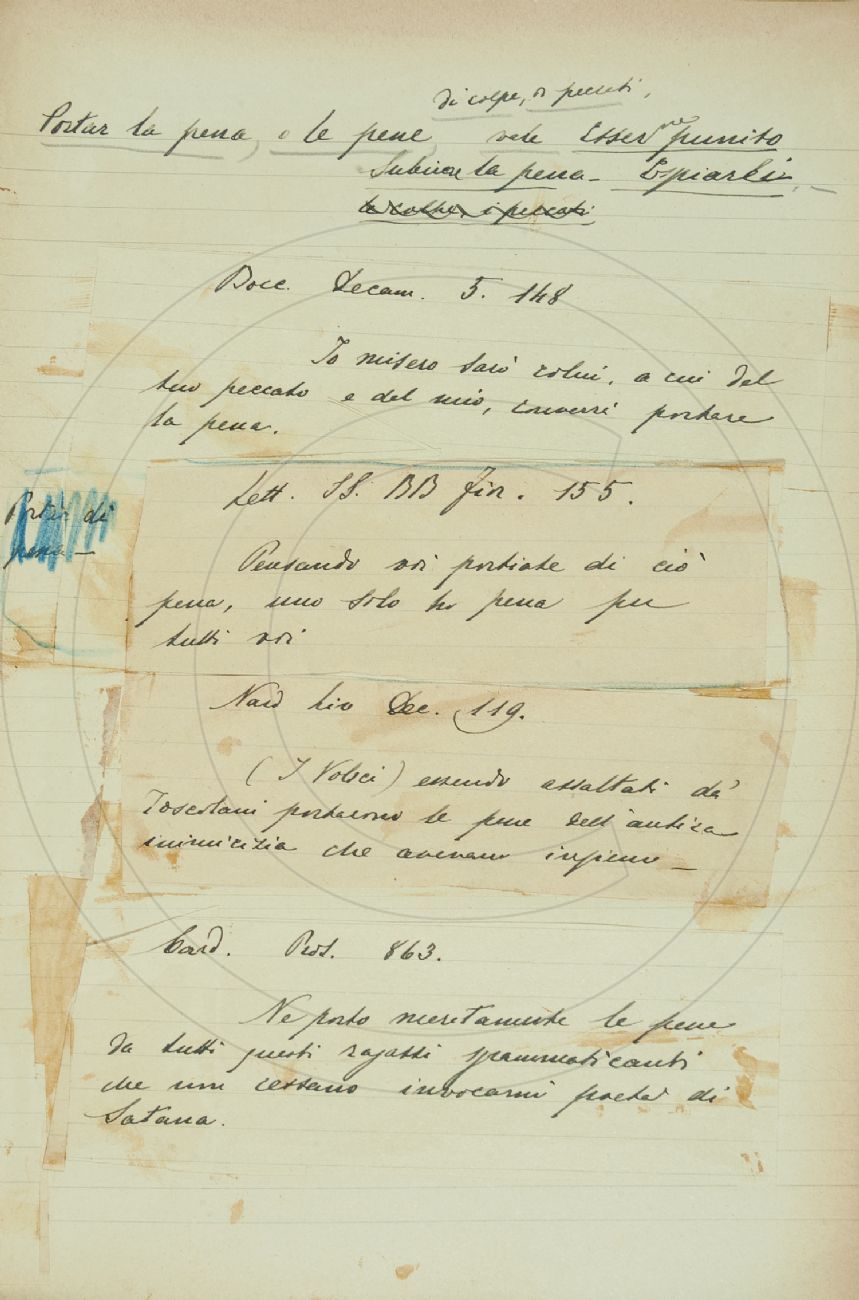 di colpe, o peccati,
Portar la pena, o le pene, vale Esserne punito
Subirne la pena - Espiarli -
le colpe, i peccati
Bocc. Decam. 5. 148
Io misero sarò colui, a cui del
tuo peccato e del mio, converrà portare
la pena.
Lett. SS. BB Fior. 155.
Portar di
pena -
Pensando voi portiate di ciò
pena, uno solo ho pena per
tutti voi
Nard Liv Dec. 119.
(I Volsci) essendo assaltati da'
Toscolani portarono le pene dell'antica
inimicizia che avevano insieme -
Card. Pros. 863.
Ne porto meritamente le pene
da tutti questi ragazzi grammaticanti
che non cessano invocarmi poeta di
Satana.